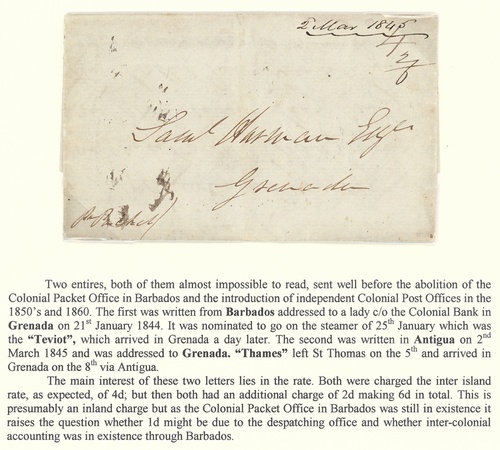 2 Mar 1845
4
2/6
Saml Harman Esqr
Grenada
Two entires, both of them almost impossible to read, sent well before the abolition of the
Colonial Packet Office in Barbados and the introduction of independent Colonial Post Offices in the
1850's and 1860. The first was written from Barbados addressed to a lady c/o the Colonial Bank in
Grenada on 21st January 1844. It was nominated to go on the steamer of 25th January which was
the "Teviot", which arrived in Grenada a day later. The second was written in Antigua on 2nd
March 1845 and was addressed to Grenada. "Thames" left St Thomas on the 5th and arrived in
Grenada on the 8th via Antigua.
The main interest of these two letters lies in the rate. Both were charged the inter island
rate, as expected, of 4d; but then both had an additional charge of 2d making 6d in total. This is
presumably an inland charge but as the Colonial Packet Office in Barbados was still in existence it
raises the question whether 1d might be due to the despatching office and whether inter-colonial
accounting was in existence through Barbados.